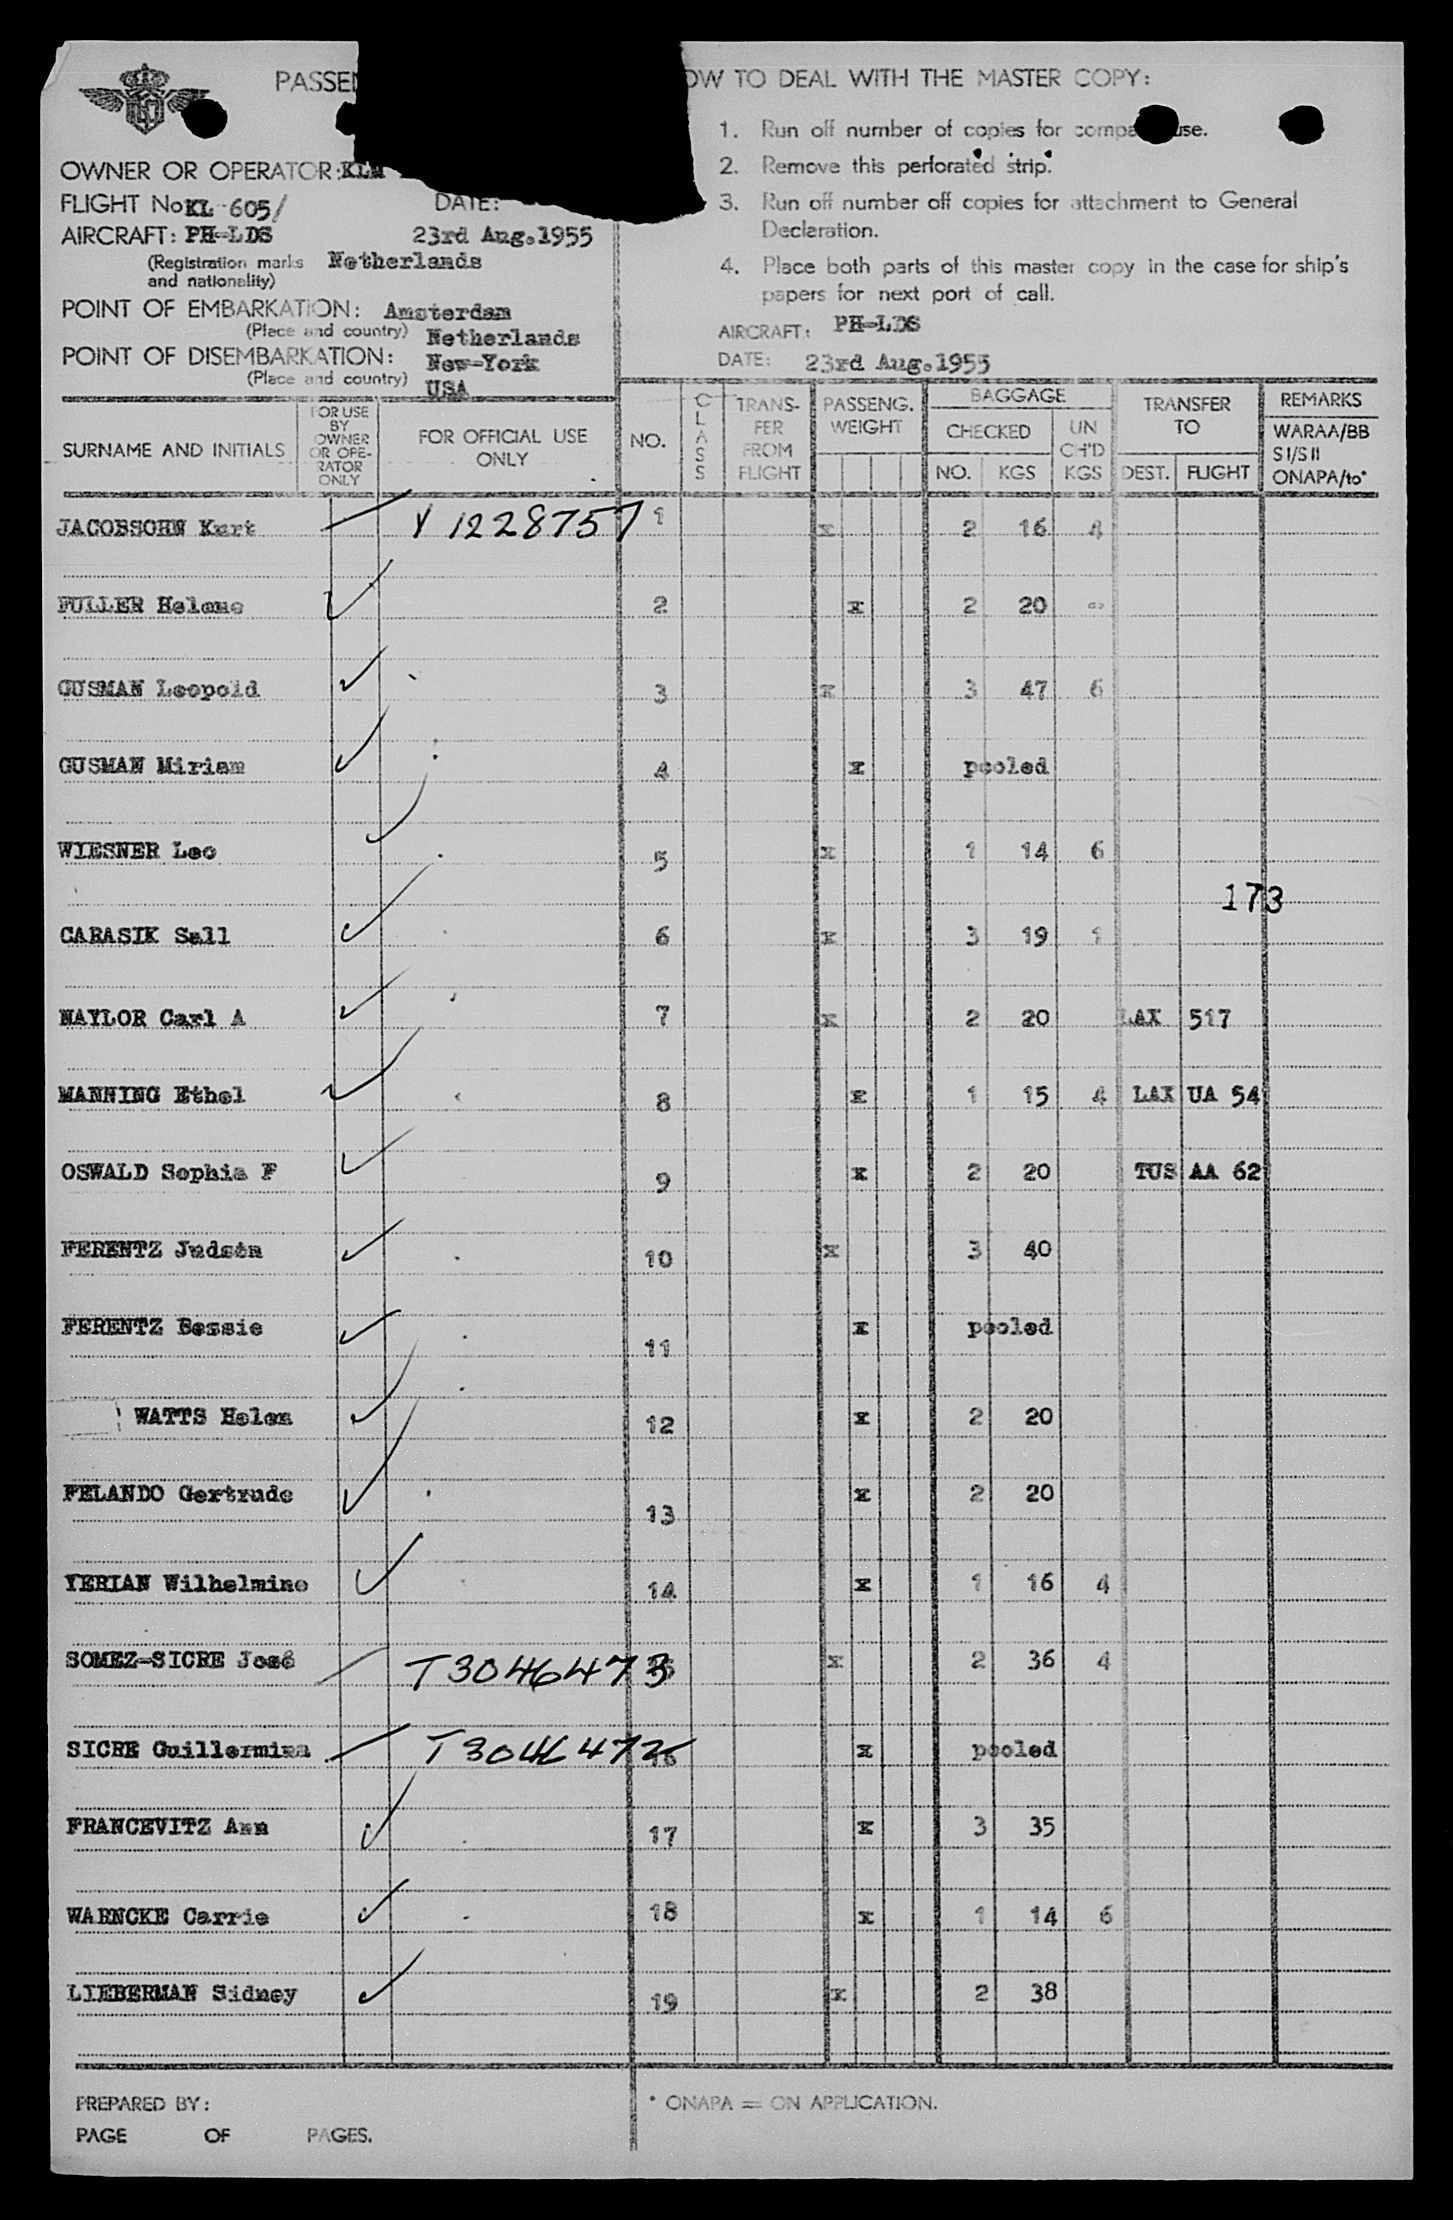 PASSEN
OWNER OR OPERATOR: KLM
FLIGHT No KL-605/ DATE:
AIRCRAFT: PH-LDS 23rd Aug.1955
(Registration marks Netherlands
and nationality)
POINT OF EMBARKATION: Amsterdam
(Place and country) Netherlands
POINT OF DISEMBARKATION: New-York
(Place and country) USA
OW TO DEAL WITH THE MASTER COPY:
1. Run off number of copies for compa use.
2. Remove this perforated strip.
3. Run off number off copies for attachment to General
Declaration.
4. Place both parts of this master copy in the case for ship's
papers for next port of call.
AIRCRAFT: PH-LDS
DATE: 23rd Aug.1955
SURNAME AND INITIALS
FOR USE
BY
OWNER
OR OPE-
RATOR
ONLY
FOR OFFICIAL USE
ONLY
NO.
CLASS
TRANS-
FER
FROM
FLIGHT
PASSENG.
WEIGHT
BAGGAGE
CHECKED
NO. KGS
UN
CH'D
KGS
TRANSFER
TO
DEST. FLIGHT
REMARKS
WARAA/BB
S I/S II
ONAPA/to*
JACOBSOHN Kurt Y 1228757 1 x 2 16 4
FULLER Helene 2 x 2 20 -
GUSMAN Leopold 3 x 3 47 6
GUSMAN Miriam 4 x pooled
WIESNER Leo 5 x 1 14 6
173
CARASIK Sall 6 x 3 19 1
NAYLOR Carl A 7 x 2 20 LAX 517
MANNING Ethel 8 x 1 15 4 LAX UA 54
OSWALD Sophia F 9 x 2 20 TUS AA 62
FERENTZ Judson 10 x 3 40
FERENTZ Bessie 11 x pooled
WATTS Helen 12 x 2 20
FELANDO Gertrude 13 x 2 20
YERIAN Wilhelmine 14 x 1 16 4
SOMEZ-SICRE José T3046473 15 x 2 36 4
SICRE Guillermina T3046472 16 x pooled
FRANCEVITZ Ann 17 x 3 35
WARNCKE Carrie 18 x 1 14 6
LIEBERMAN Sidney 19 x 2 38
PREPARED BY:
PAGE OF PAGES.
* ONAPA = ON APPLICATION.